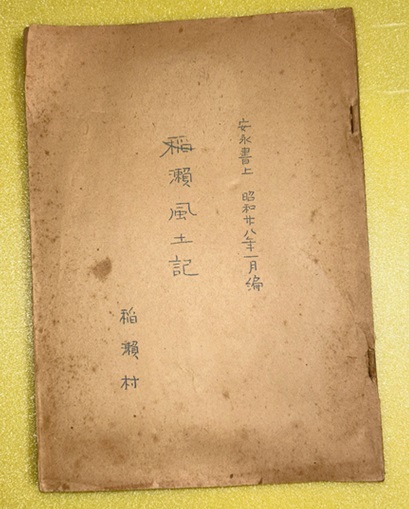 安永書上 昭和廿八年一月編
稲瀬風土記
稲瀬村